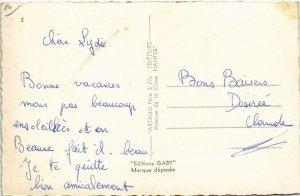 2
Chère Lydie
Bonne vacances
mais pas beaucoup
ensoleillées et en
Beauce fait'il beau.
Je te quitte
bien amicalement
"ARTAUD Père & Fils - EDITEURS
Avenue de la Close NANTES"
"Editions GABY"
Marque déposée
Bons Baisers
Desirée
Claude